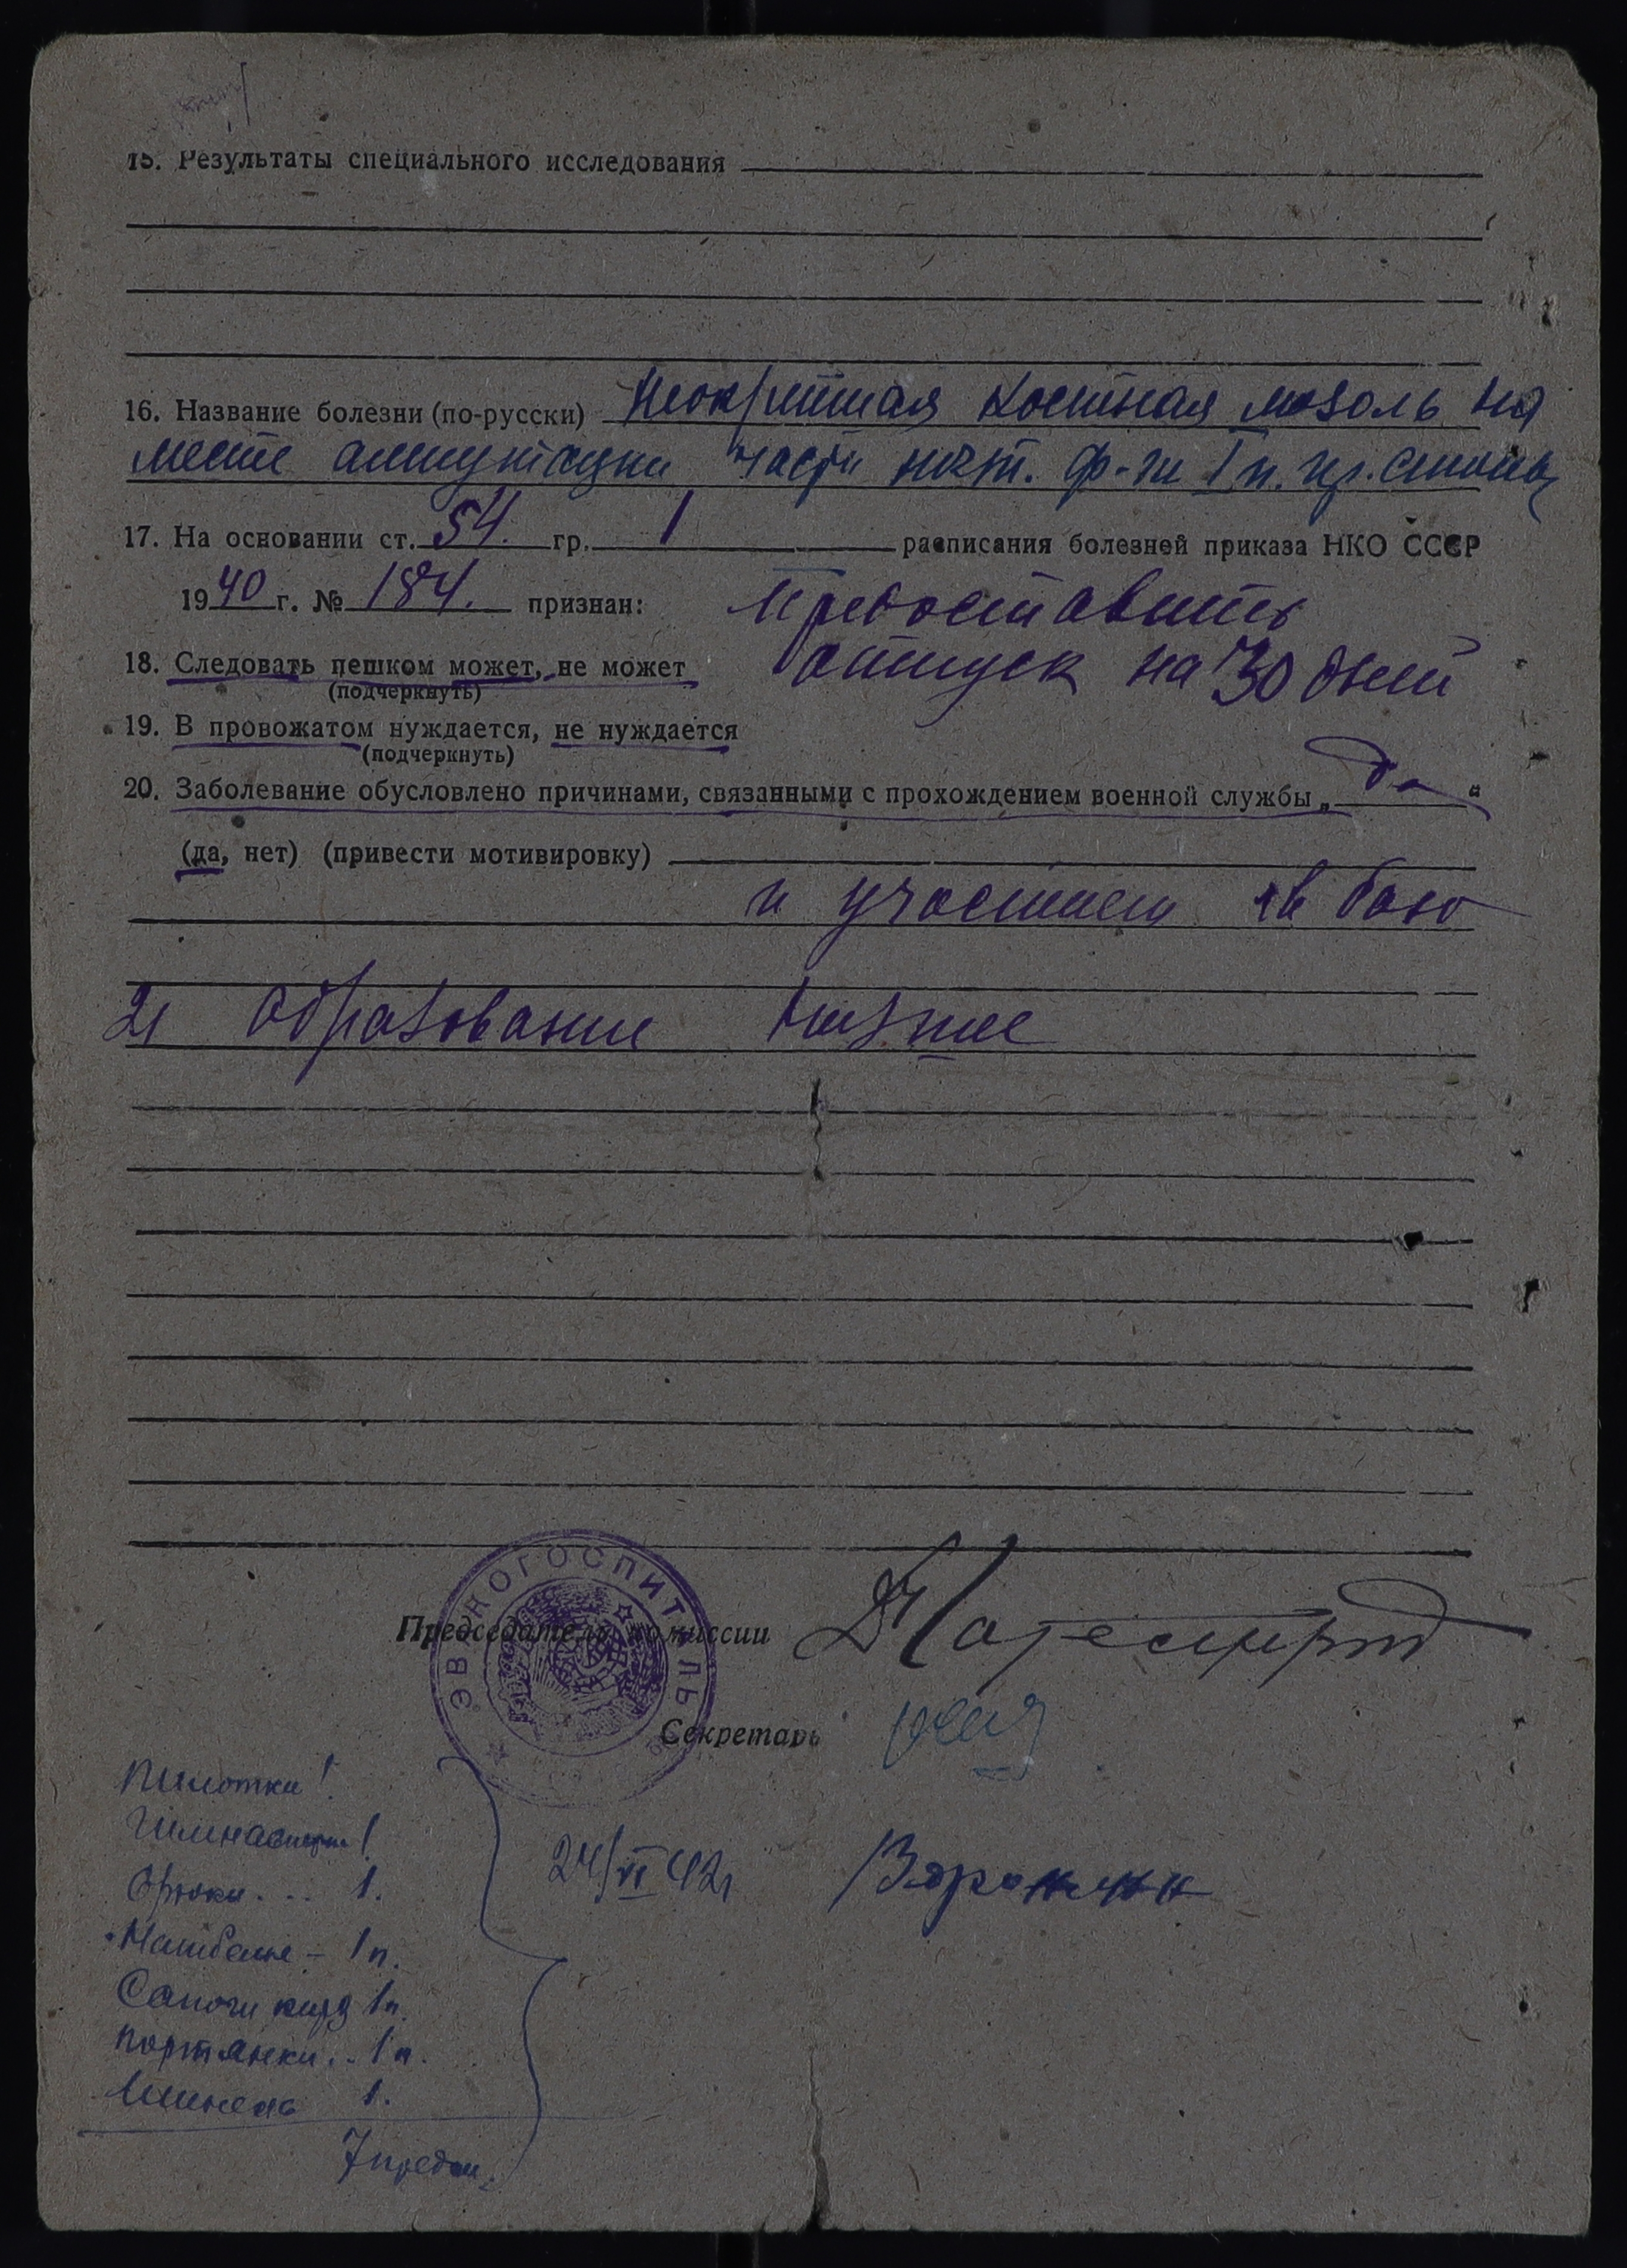 15. Результаты специального исследования
16. Название болезни (по-русски) Неокрепшая костная мозоль на
месте ампутации части ногт. ф-ги I п. пр. стопы
17. На основании ст. 54. гр. 1 расписания болезней приказа НКО СССР
1940 г. № 184. признан: предоставить
18. Следовать пешком может, не может отпуск на 30 дней
(подчеркнуть)
19. В провожатом нуждается, не нуждается
(подчеркнуть)
20. Заболевание обусловлено причинами, связанными с прохождением военной службы „да“
(да, нет) (привести мотивировку)
и участием в бою
21 образование низшее
ЭВАКОГОСПИТАЛЬ
Председатель комиссии
Секретарь
Пилотки 1
Гимнастерк. 1
Брюки... 1.
24/VI 42г Воронин
Натбелье - 1 п.
Сапоги кирз 1 п.
портянки.. 1 п.
Шинель 1.
7 предм.